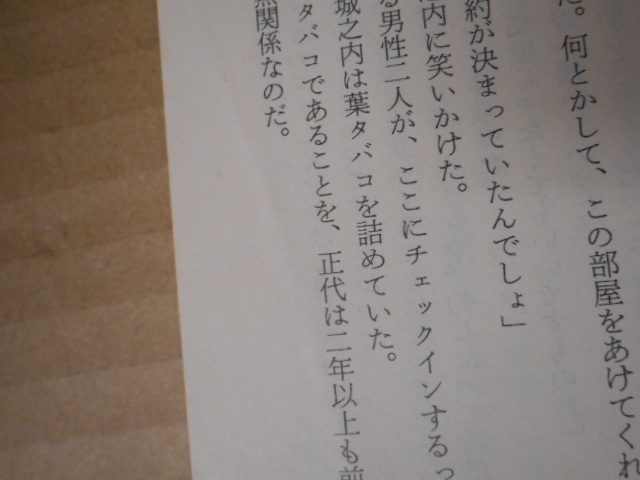 。何とかして、この部屋をあけてくれ
約が決まっていたんでしょ」
内に笑いかけた。
る男性二人が、ここにチェックインするっ
城之内は葉タバコを詰めていた。
タバコであることを、正代は二年以上も前
関係なのだ。